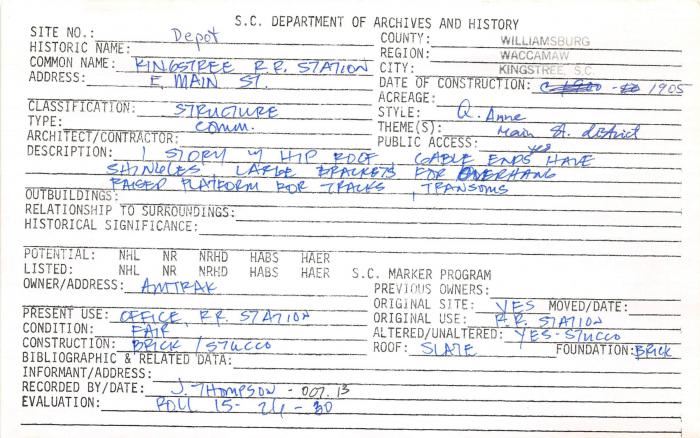 S.C. DEPARTMENT OF ARCHIVES AND HISTORY
SITE NO.: Depot COUNTY: WILLIAMSBURG
HISTORIC NAME: REGION: WACCAMAW
COMMON NAME: KINGSTREE R.R. STATION CITY: KINGSTREE, S.C.
ADDRESS: E. MAIN ST. DATE OF CONSTRUCTION: 1905
ACREAGE:
CLASSIFICATION: STRUCTURE STYLE: Q. Anne
TYPE: Comm. THEME(S): Main St. district
ARCHITECT/CONTRACTOR: PUBLIC ACCESS: yes
DESCRIPTION: 1 STORY W HIP ROOF GABLE ENDS HAVE
SHINGLES LARGE BRACKETS FOR OVERHANG
RAISED PLATFORM FOR TRACKS, TRANSOMS
OUTBUILDINGS:
RELATIONSHIP TO SURROUNDINGS:
HISTORICAL SIGNIFICANCE:
POTENTIAL: NHL NR NRHD HABS HAER
LISTED: NHL NR NRHD HABS HAER S.C. MARKER PROGRAM
OWNER/ADDRESS: AMTRAK PREVIOUS OWNERS:
ORIGINAL SITE: YES MOVED/DATE:
PRESENT USE: OFFICE, R.R. STATION ORIGINAL USE: R.R. STATION
CONDITION: FAIR ALTERED/UNALTERED: YES-STUCCO
CONSTRUCTION: BRICK/STUCCO ROOF: SLATE FOUNDATION: BRICK
BIBLIOGRAPHIC & RELATED DATA:
INFORMANT/ADDRESS:
RECORDED BY/DATE: J. THOMPSON - OCT. 13
EVALUATION: ROLL 15- 24 - 30